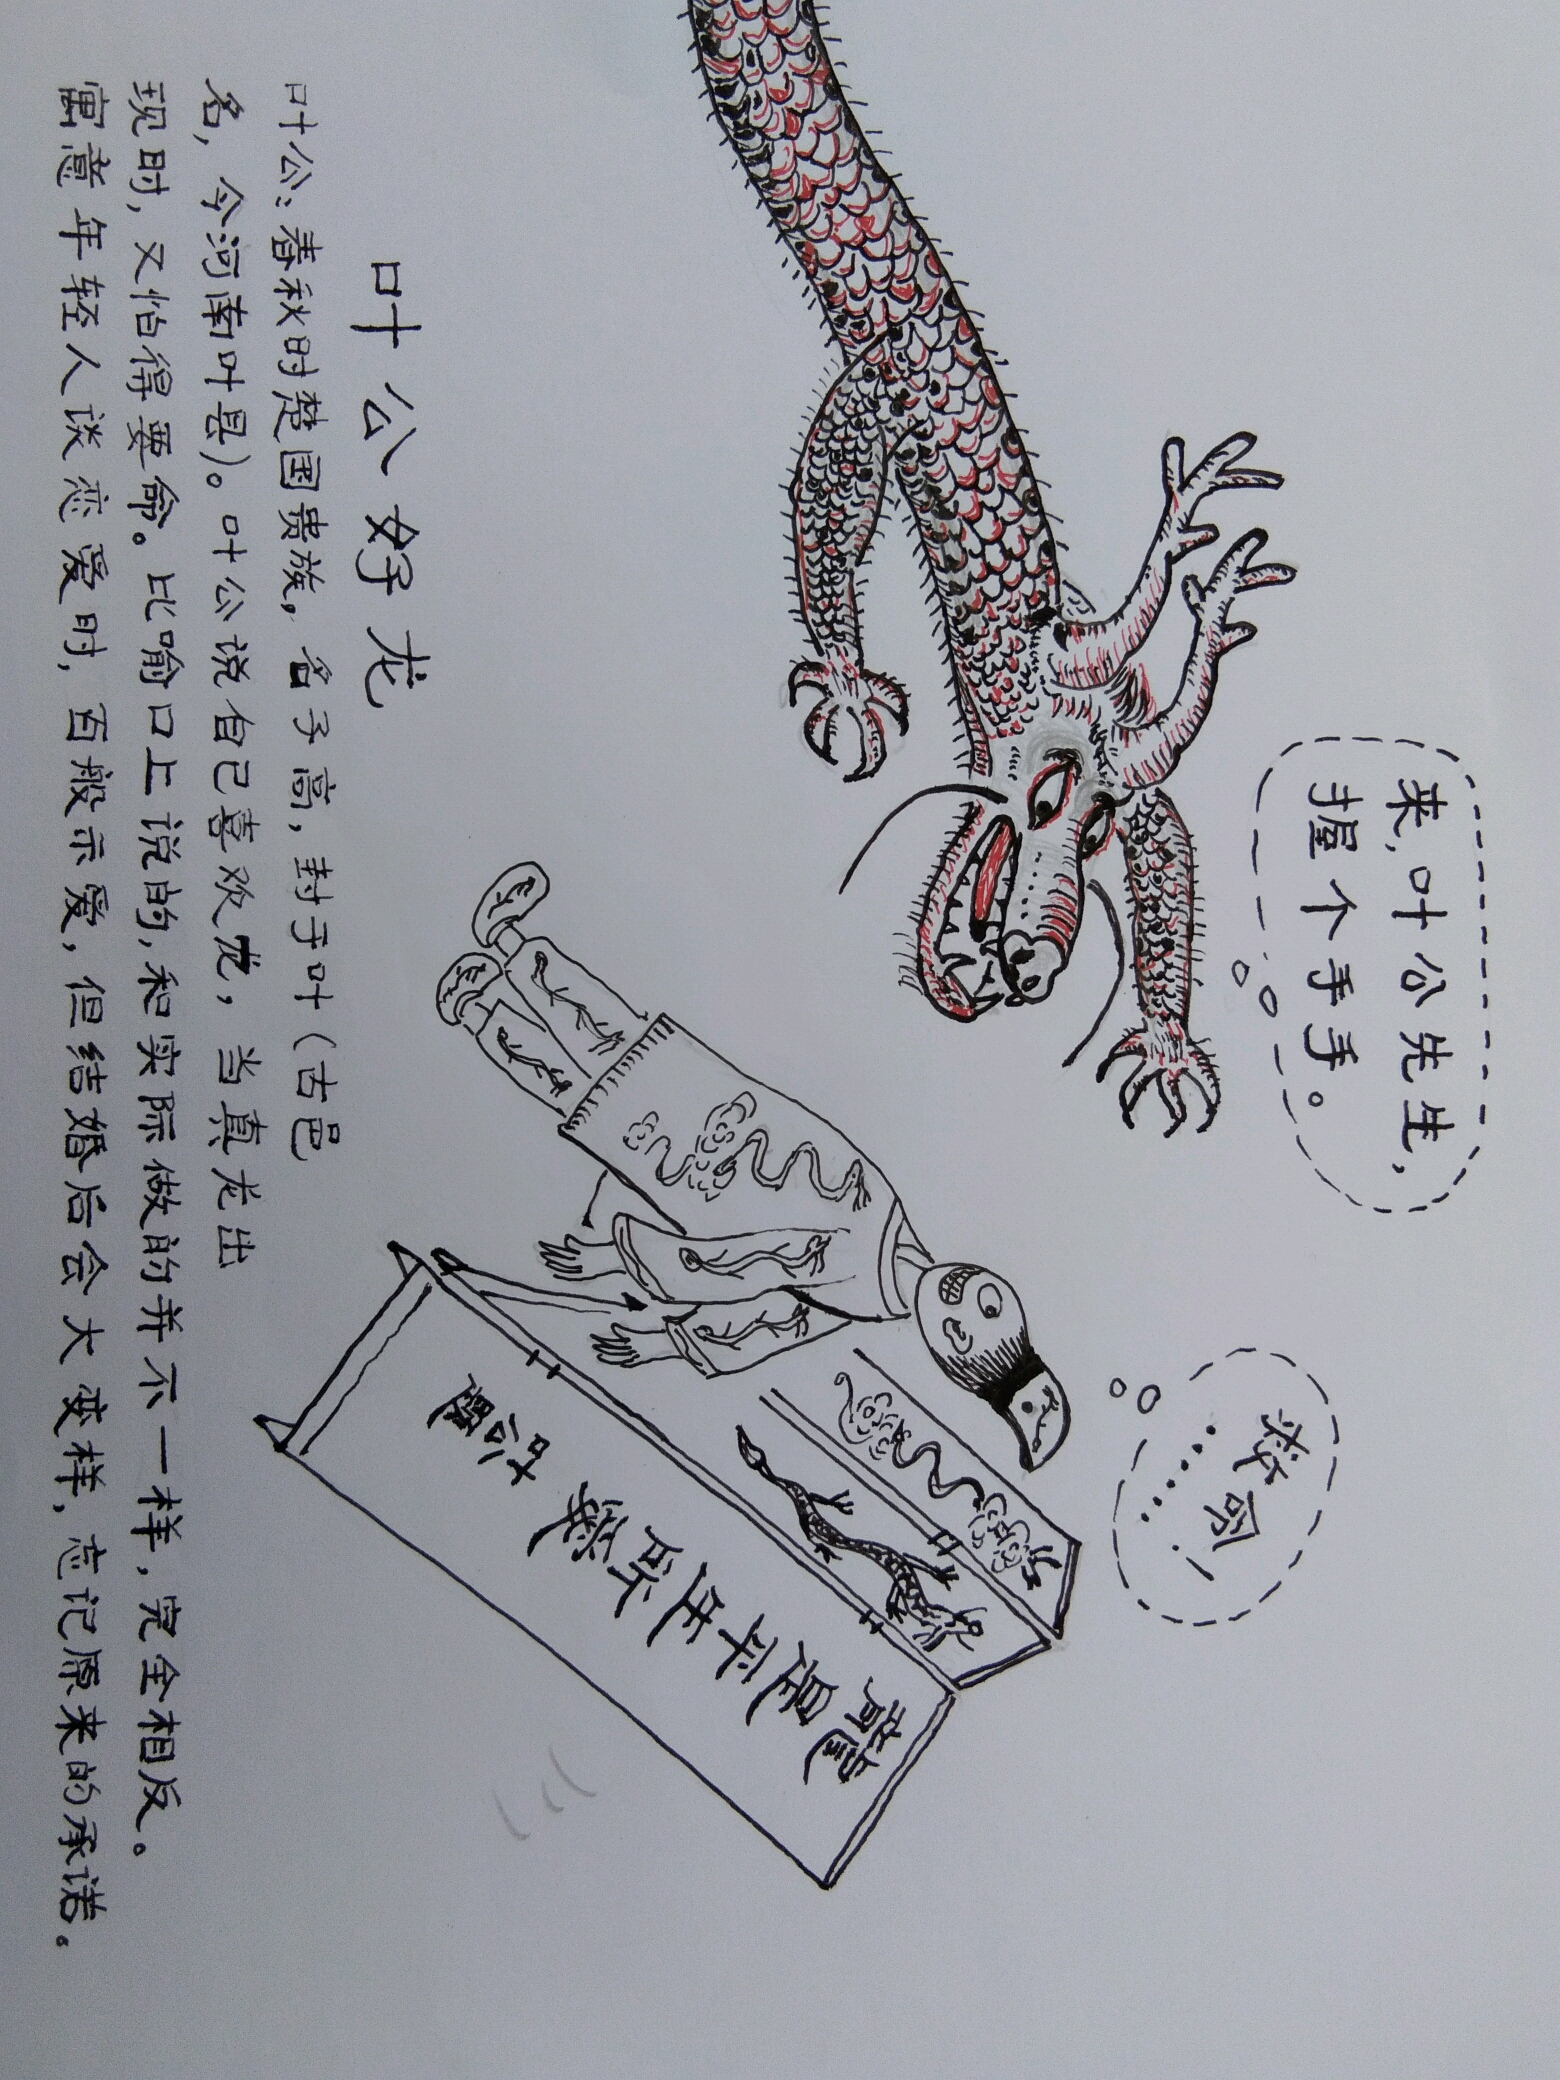 来，叶公先生，
握个手手。
救命！
……
龍是平生所爱
叶公題
叶公好龙
叶公：春秋时楚国贵族，名子高，封于叶（古邑
名，今河南叶县）。叶公说自己喜欢龙，当真龙出
现时，又怕得要命。比喻口上说的，和实际做的并不一样，完全相反。
寓意年轻人谈恋爱时，百般示爱，但结婚后会大变样，忘记原来的承诺。